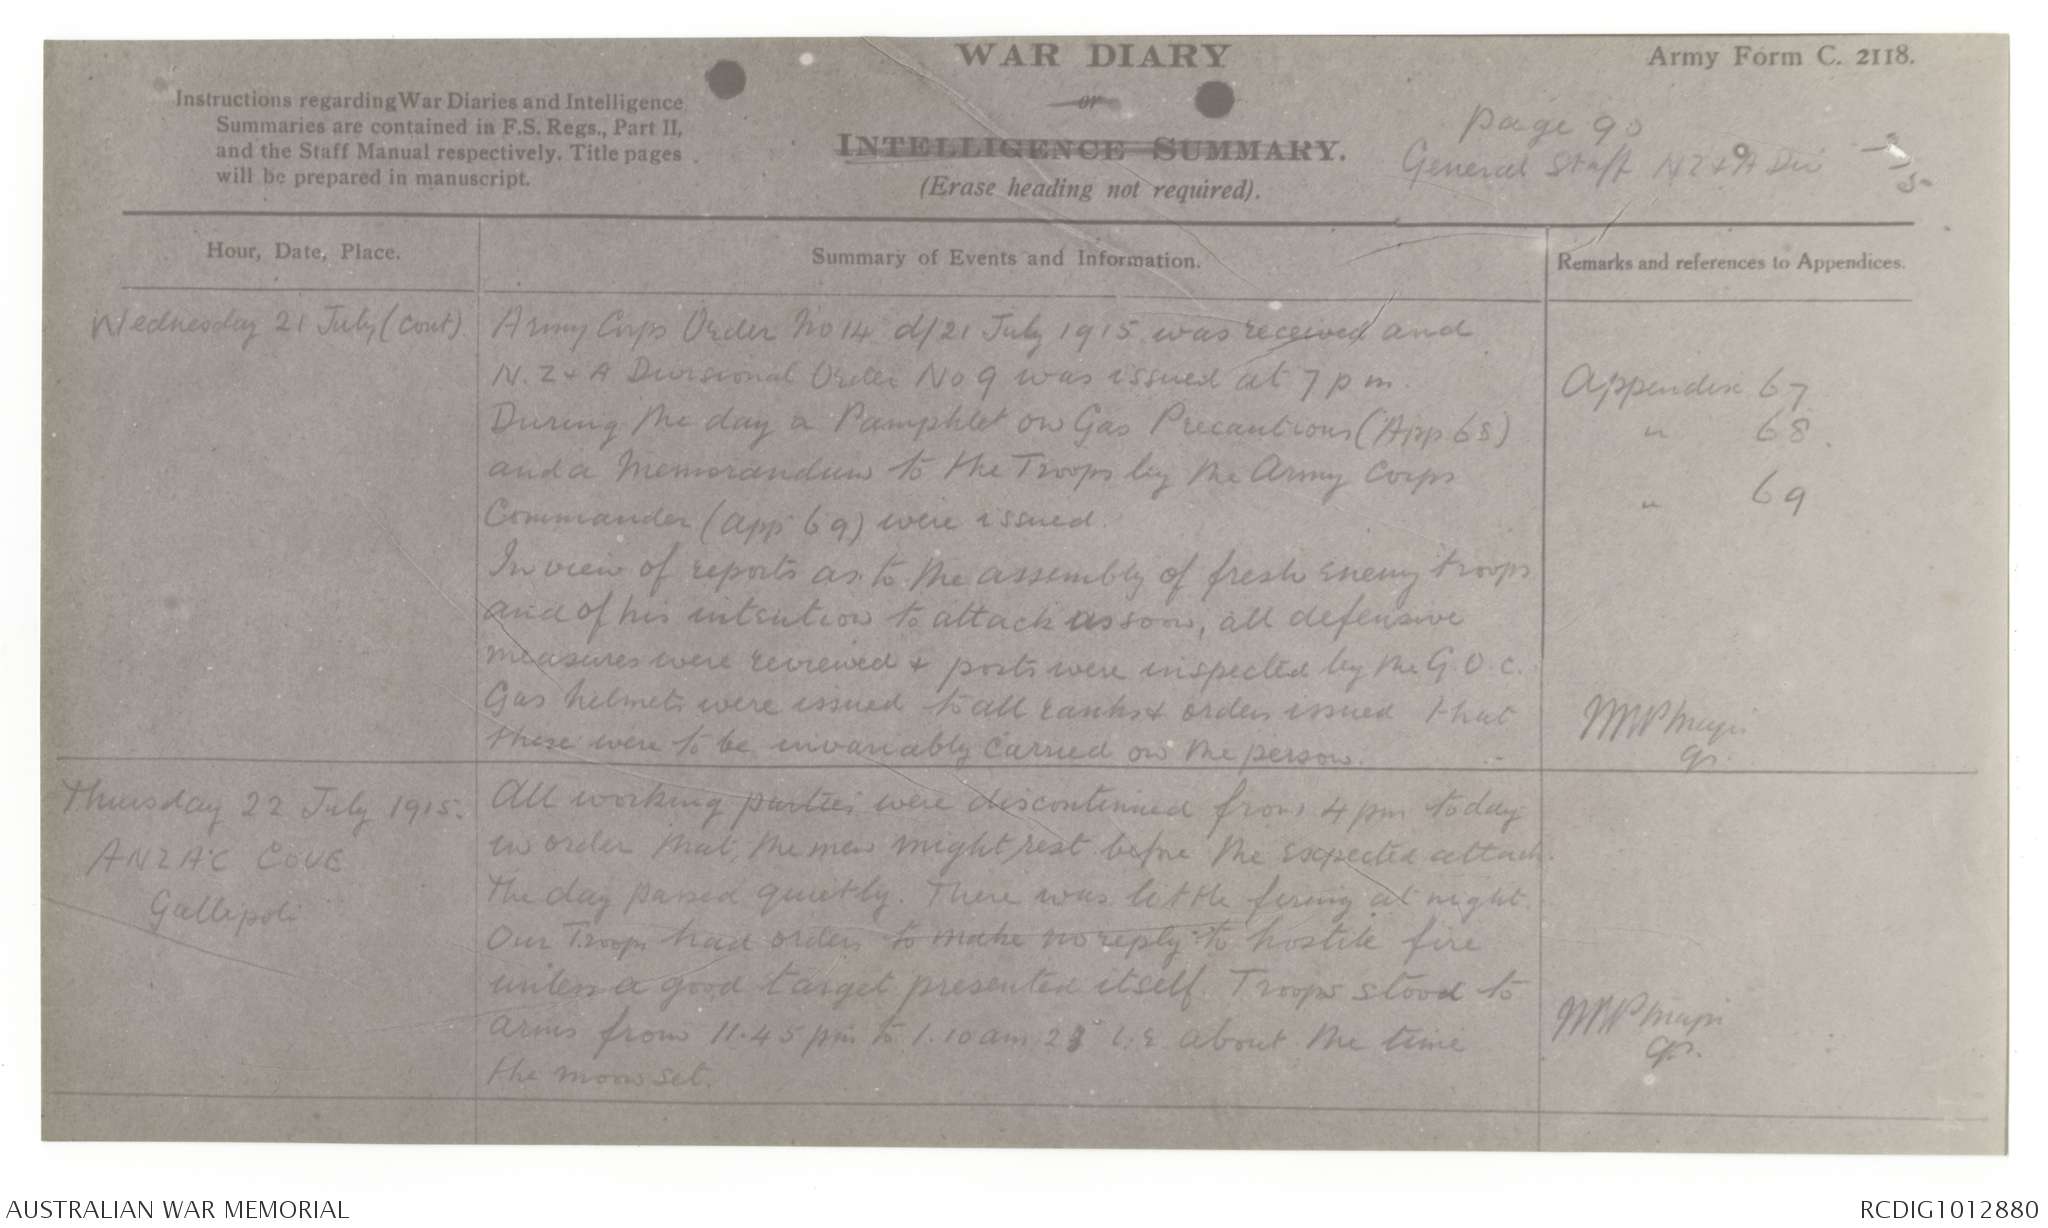 WAR DIARY
or
INTELLIGENCE SUMMARY.
(Erase heading not required).
Army Form C. 2118.
Instructions regarding War Diaries and Intelligence
Summaries are contained in F.S. Regs., Part II,
and the Staff Manual respectively. Title pages
will be prepared in manuscript.
page 90
General Staff NZ & A Div
Hour, Date, Place.
Summary of Events and Information.
Remarks and references to Appendices.
Wednesday 21 July (cont)
Army Corps Order No 14 d/21 July 1915 was received and
N.Z & A Divisional Order No 9 was issued at 7 pm.
During the day a Pamphlet on Gas Precautions (App 68)
and a Memorandum to the Troops by the Army Corps
Commander (app 69) were issued.
In view of reports as to the assembly of fresh enemy troops
and of his intention to attack us soon, all defensive
measures were reviewed & posts were inspected by the G.O.C.
Gas helmets were issued to all ranks & orders issued that
these were to be invariably carried on the person.
Appendix 67
" 68.
" 69
Major
gs.
Thursday 22 July 1915.
ANZAC COVE
Gallipoli
All working parties were discontinued from 4 pm today
in order that the men might rest before the expected attack.
The day passed quietly. There was little firing at night.
Our Troops had orders to make no reply to hostile fire
unless a good target presented itself. Troops stood to
arms from 11.45 pm to 1.10 am 23 i.e. about the time
the moon set.
Major
gs.
AUSTRALIAN WAR MEMORIAL
RCDIG1012880